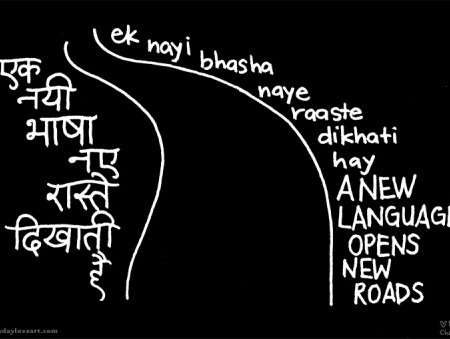 एक
नयी
भाषा
नए
रास्ते
दिखाती
है
ek nayi bhasha
naye
raaste
dikhati
hay
A NEW
LANGUAGE
OPENS
NEW
ROADS